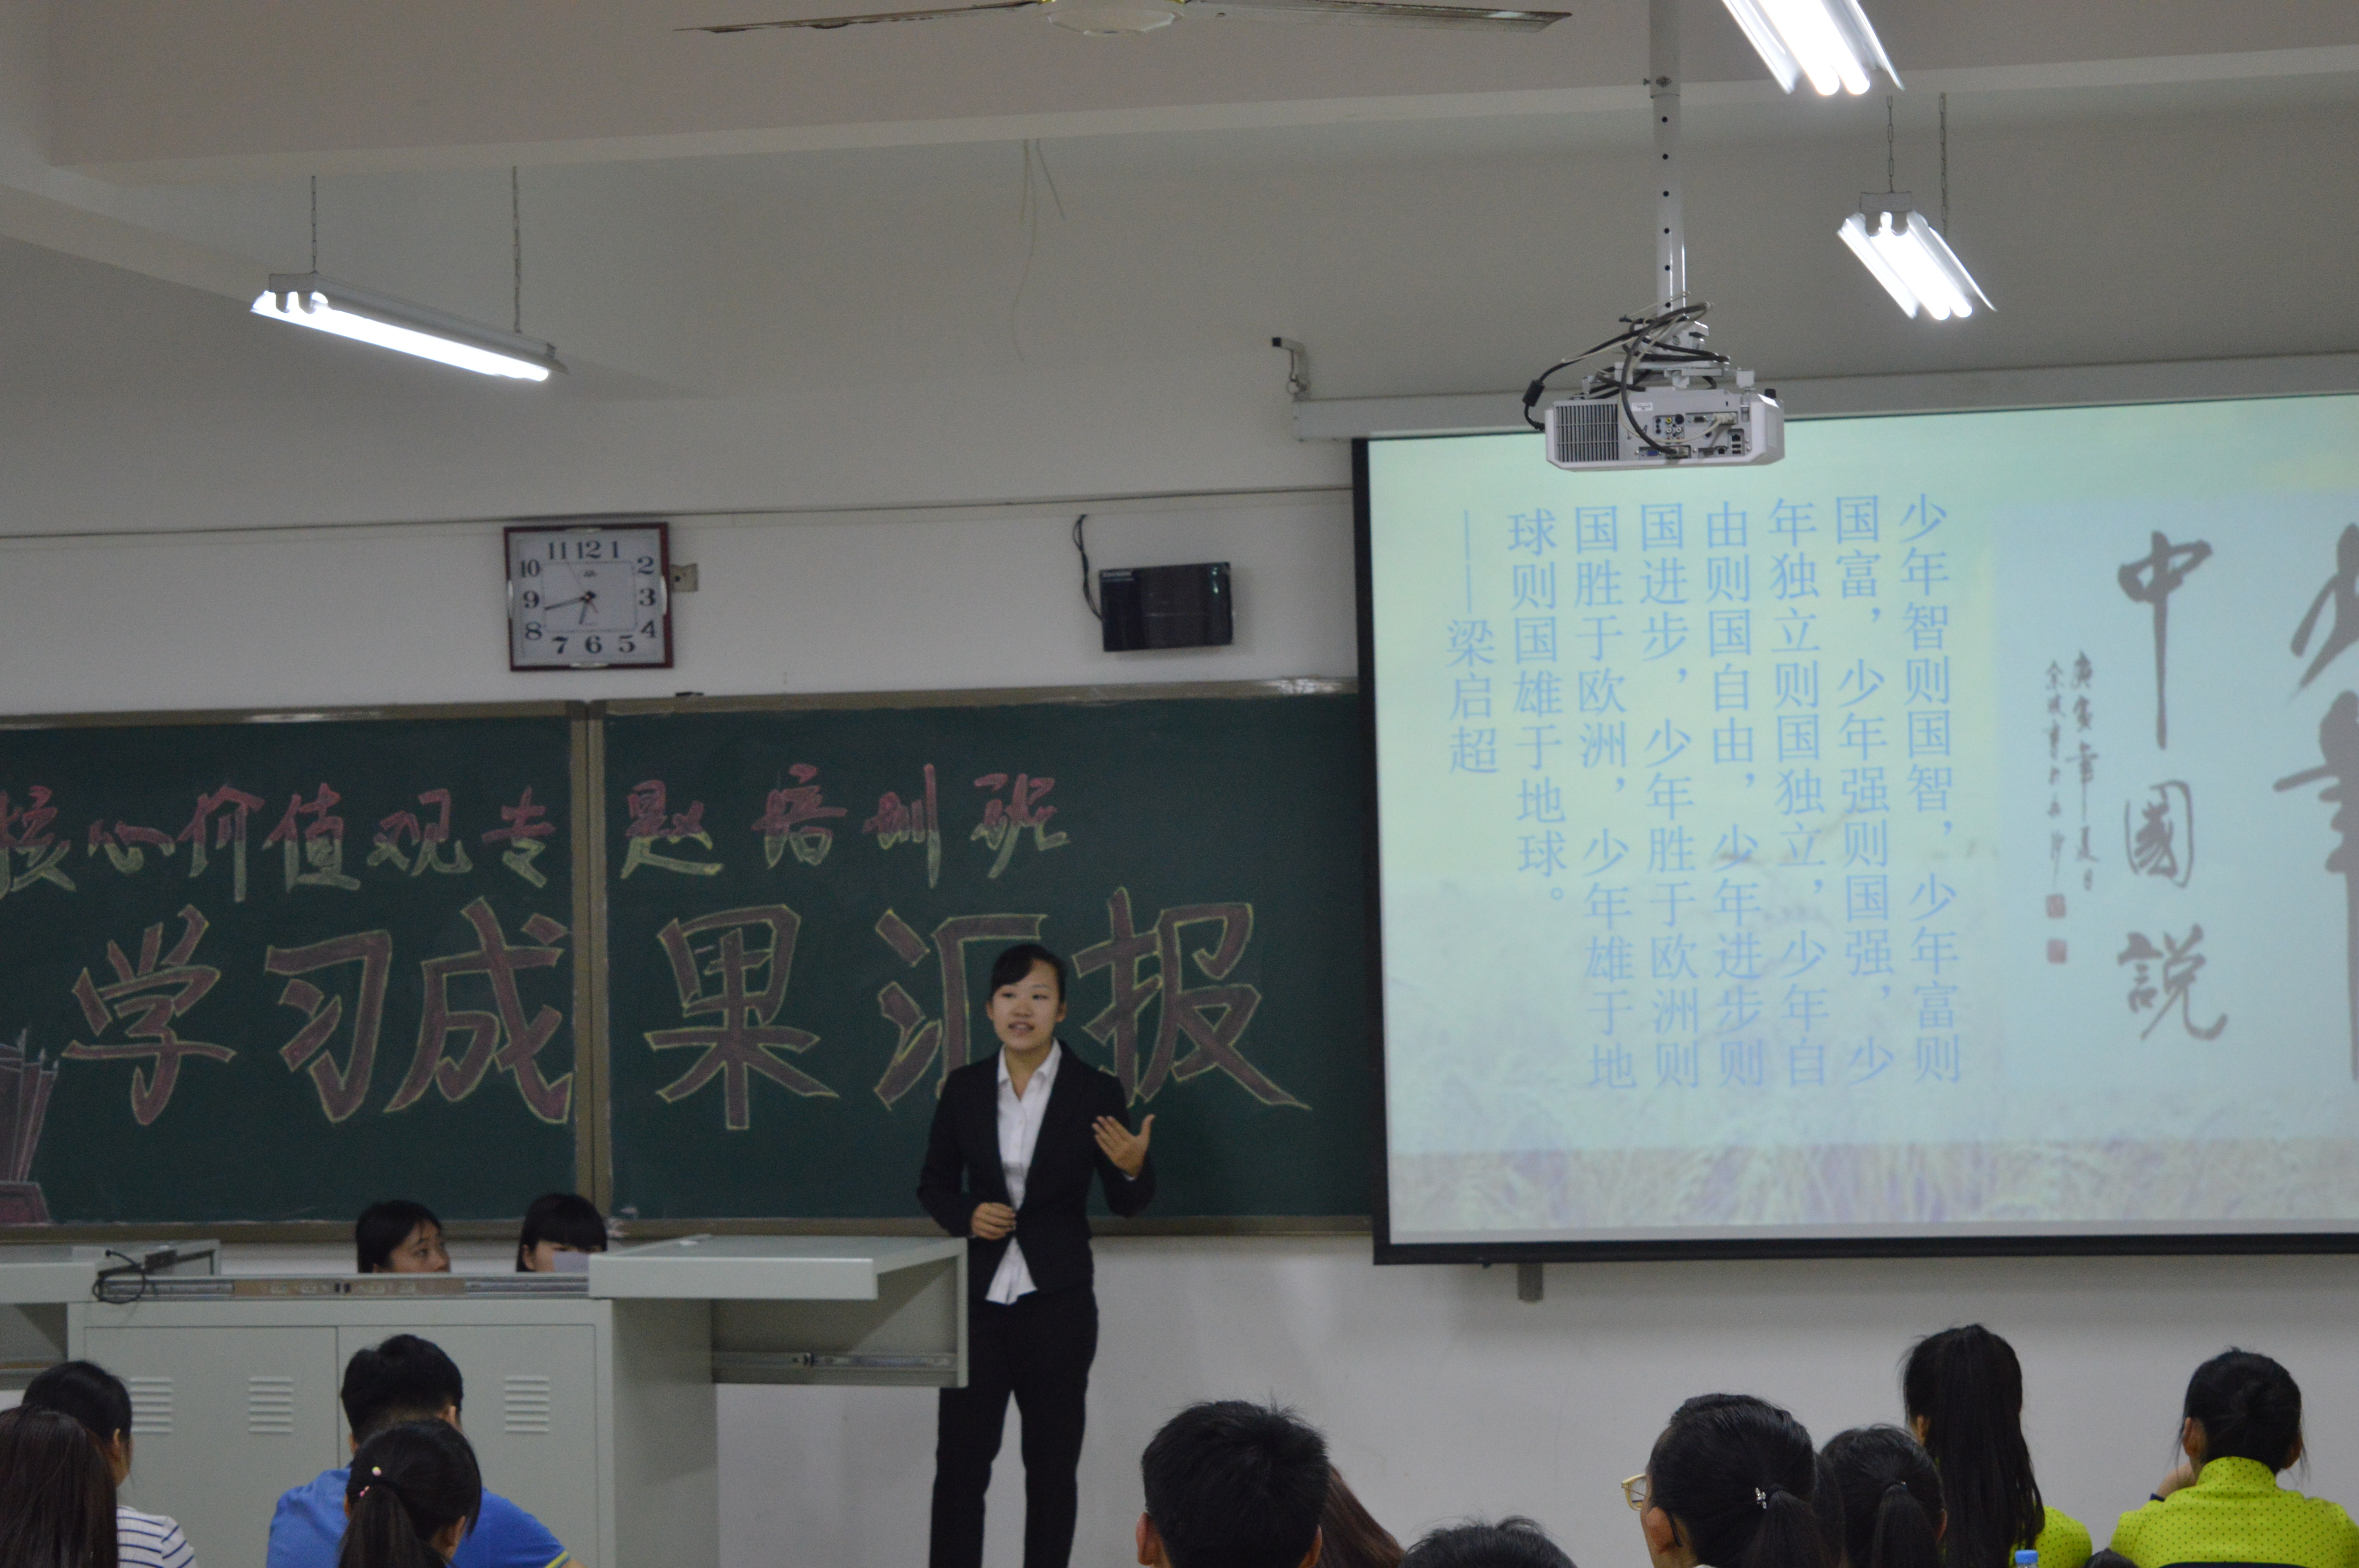 11 12 1
10 2
9 3
8 4
7 6 5
核心价值观专题培训班
学习成果汇报
少年
中國説
庚寅年夏日
少年智则国智，少年富则
国富，少年强则国强，少
年独立则国独立，少年自
由则国自由，少年进步则
国进步，少年胜于欧洲则
国胜于欧洲，少年雄于地
球则国雄于地球。
——梁启超